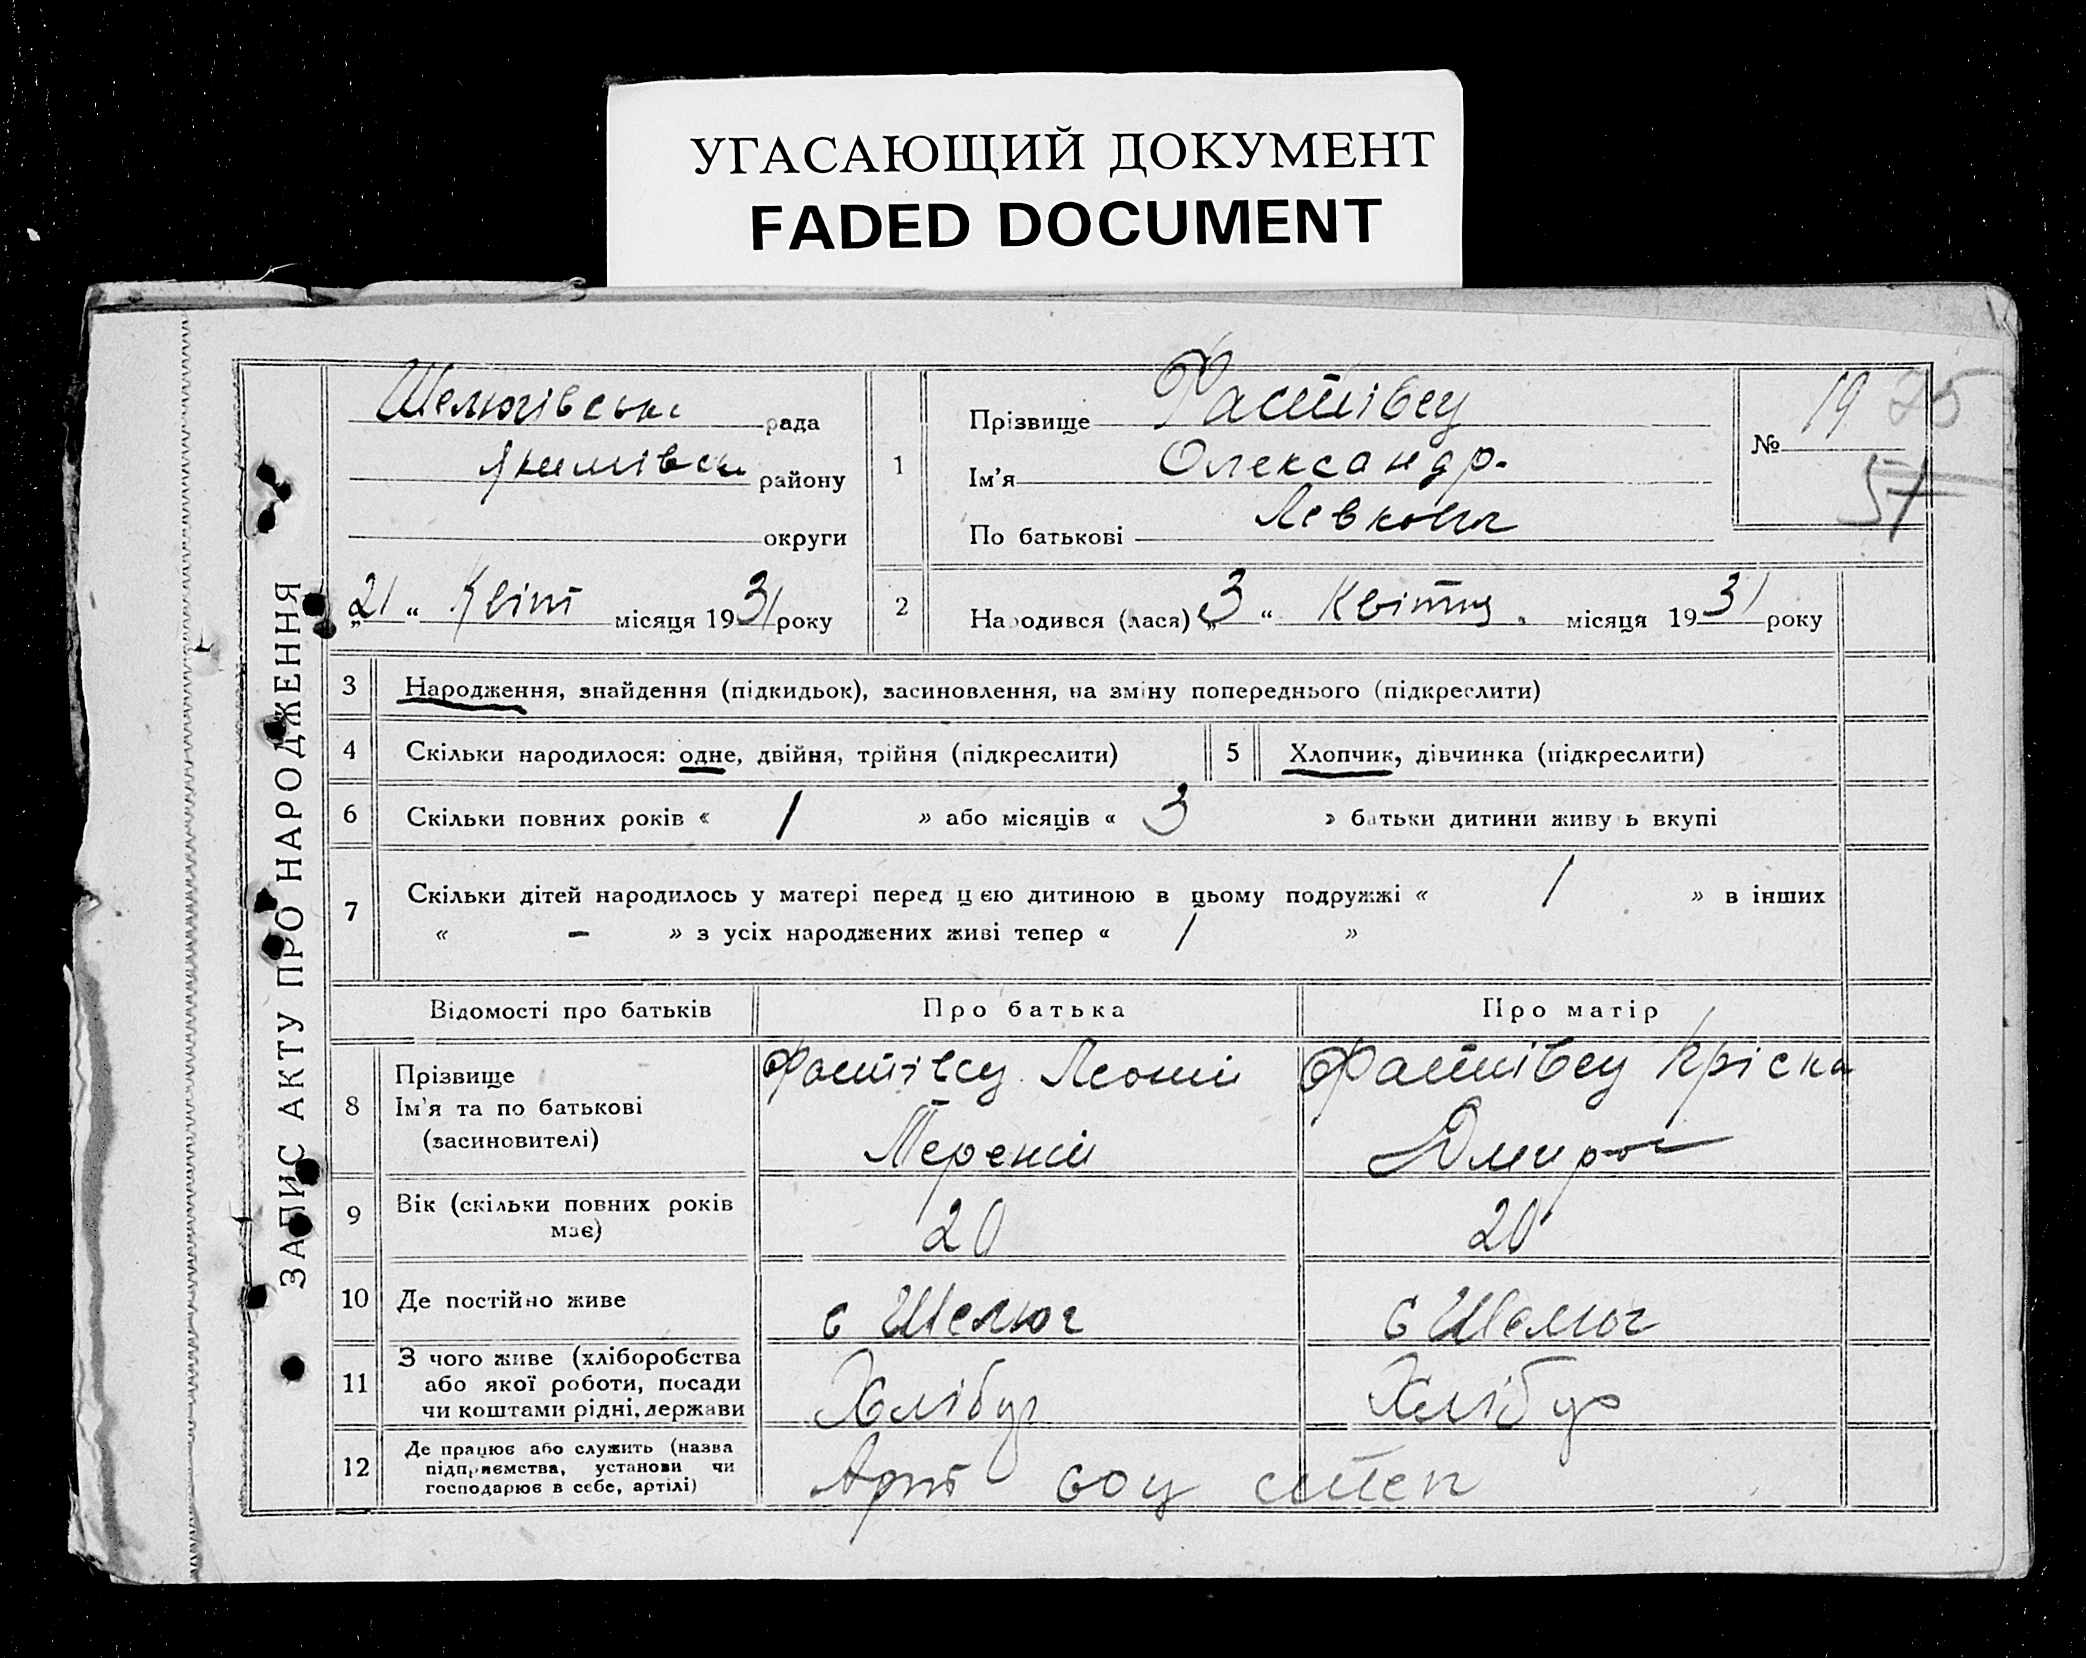 УГАСАЮЩИЙ ДОКУМЕНТ
FADED DOCUMENT
ЗАПИС АКТУ ПРО НАРОДЖЕННЯ
Шелюгівськ рада
Якимівськ району
округи
„21“ Квіт місяця 1931 року
1
Прізвище Фастівец
Ім'я Олександр.
По батькові
№ 19
25
57
2
Народився (лася) „3“ Квітня місяця 1931 року
3 Народження, знайдення (підкидьок), засиновлення, на зміну попереднього (підкреслити)
4 Скільки народилося: одне, двійня, трійня (підкреслити)
5 Хлопчик, дівчинка (підкреслити)
6 Скільки повних років « 1 » або місяців « 3 » батьки дитини живуть вкупі
7 Скільки дітей народилось у матері перед цією дитиною в цьому подружжі « 1 » в інших
« - » з усіх народжених живі тепер « 1 »
Відомості про батьків
Про батька
Про матір
8 Прізвище
Ім'я та по батькові
(засиновителі)
Фастівец
Фастівец
9 Вік (скільки повних років
має)
20
20
10 Де постійно живе
с Шелюг
с Шелюг
11 З чого живе (хліборобства
або якої роботи, посади
чи коштами рідні, держави
Хлібор
Хлібор
12 Де працює або служить (назва
підприємства, установи чи
господарює в себе, артілі)
Арт соц степ